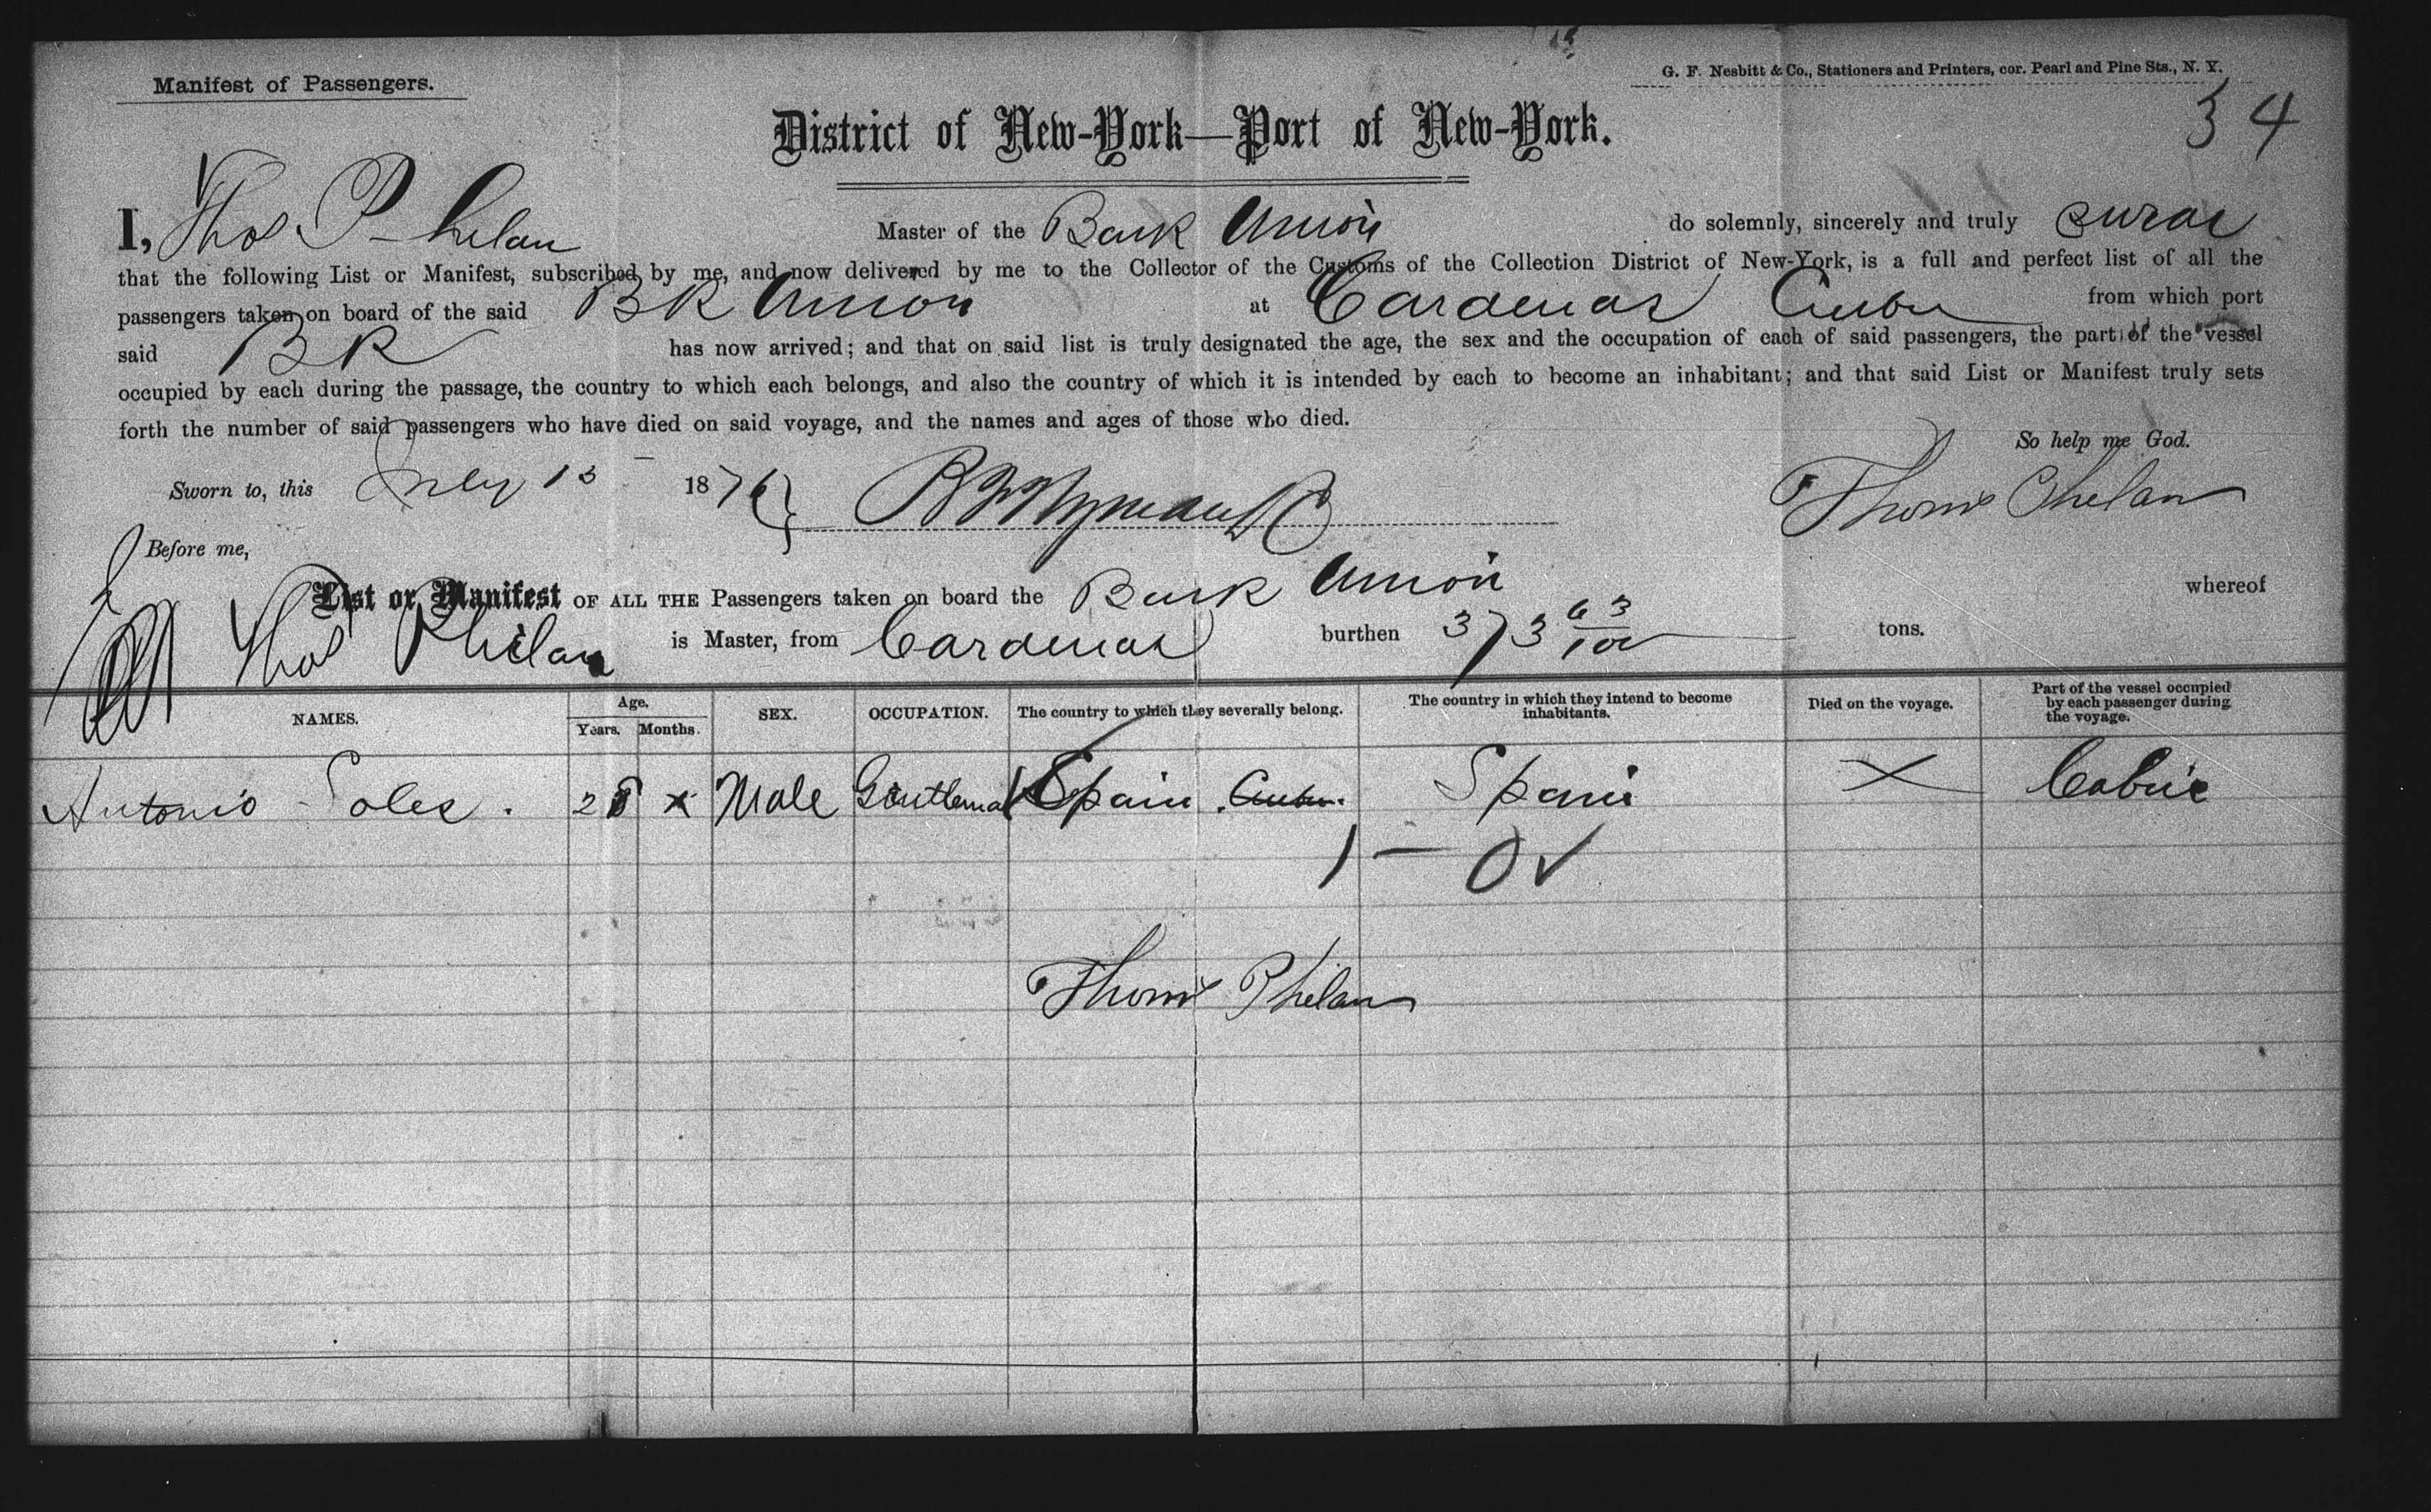 Manifest of Passengers.
G. F. Nesbitt & Co., Stationers and Printers, cor. Pearl and Pine Sts., N. Y.
34
District of New-York—Port of New-York.
I, Thos Phelan Master of the Bark Union do solemnly, sincerely and truly swear
that the following List or Manifest, subscribed by me, and now delivered by me to the Collector of the Customs of the Collection District of New-York, is a full and perfect list of all the
passengers taken on board of the said BK Union at Cardenas Cuba from which port
said BK has now arrived; and that on said list is truly designated the age, the sex and the occupation of each of said passengers, the part of the vessel
occupied by each during the passage, the country to which each belongs, and also the country of which it is intended by each to become an inhabitant; and that said List or Manifest truly sets
forth the number of said passengers who have died on said voyage, and the names and ages of those who died.
So help me God.
Sworn to, this July 13 1876 Thoms Phelan
Before me,
List or Manifest OF ALL THE Passengers taken on board the Bark Union whereof
Thos Phelan is Master, from Cardenas burthen 373 63/100 tons.
NAMES. Age. Years. Months. SEX. OCCUPATION. The country to which they severally belong. The country in which they intend to become inhabitants. Died on the voyage. Part of the vessel occupied by each passenger during the voyage.
Antonio Soles. X Male Gentleman Spain Cuba. Spain X Cabin
1 — 0 ✓
Thoms Phelan